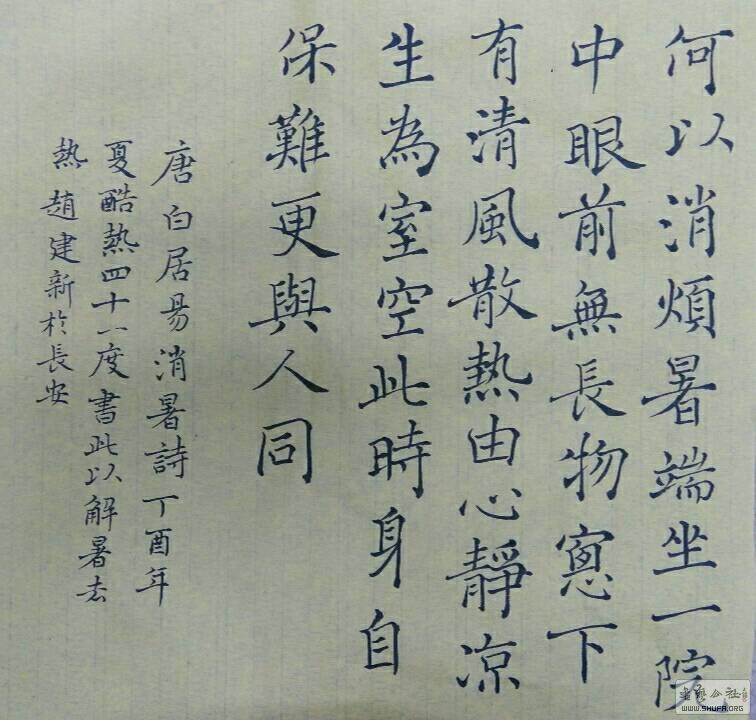 何以消煩暑端坐一院
中眼前無長物窓下
有清風散熱由心靜凉
生為室空此時身自
保難更與人同
唐白居易消暑詩丁酉年
夏酷熱四十一度書此以解暑去
熱趙建新於長安
WWW.SHUFA.ORG